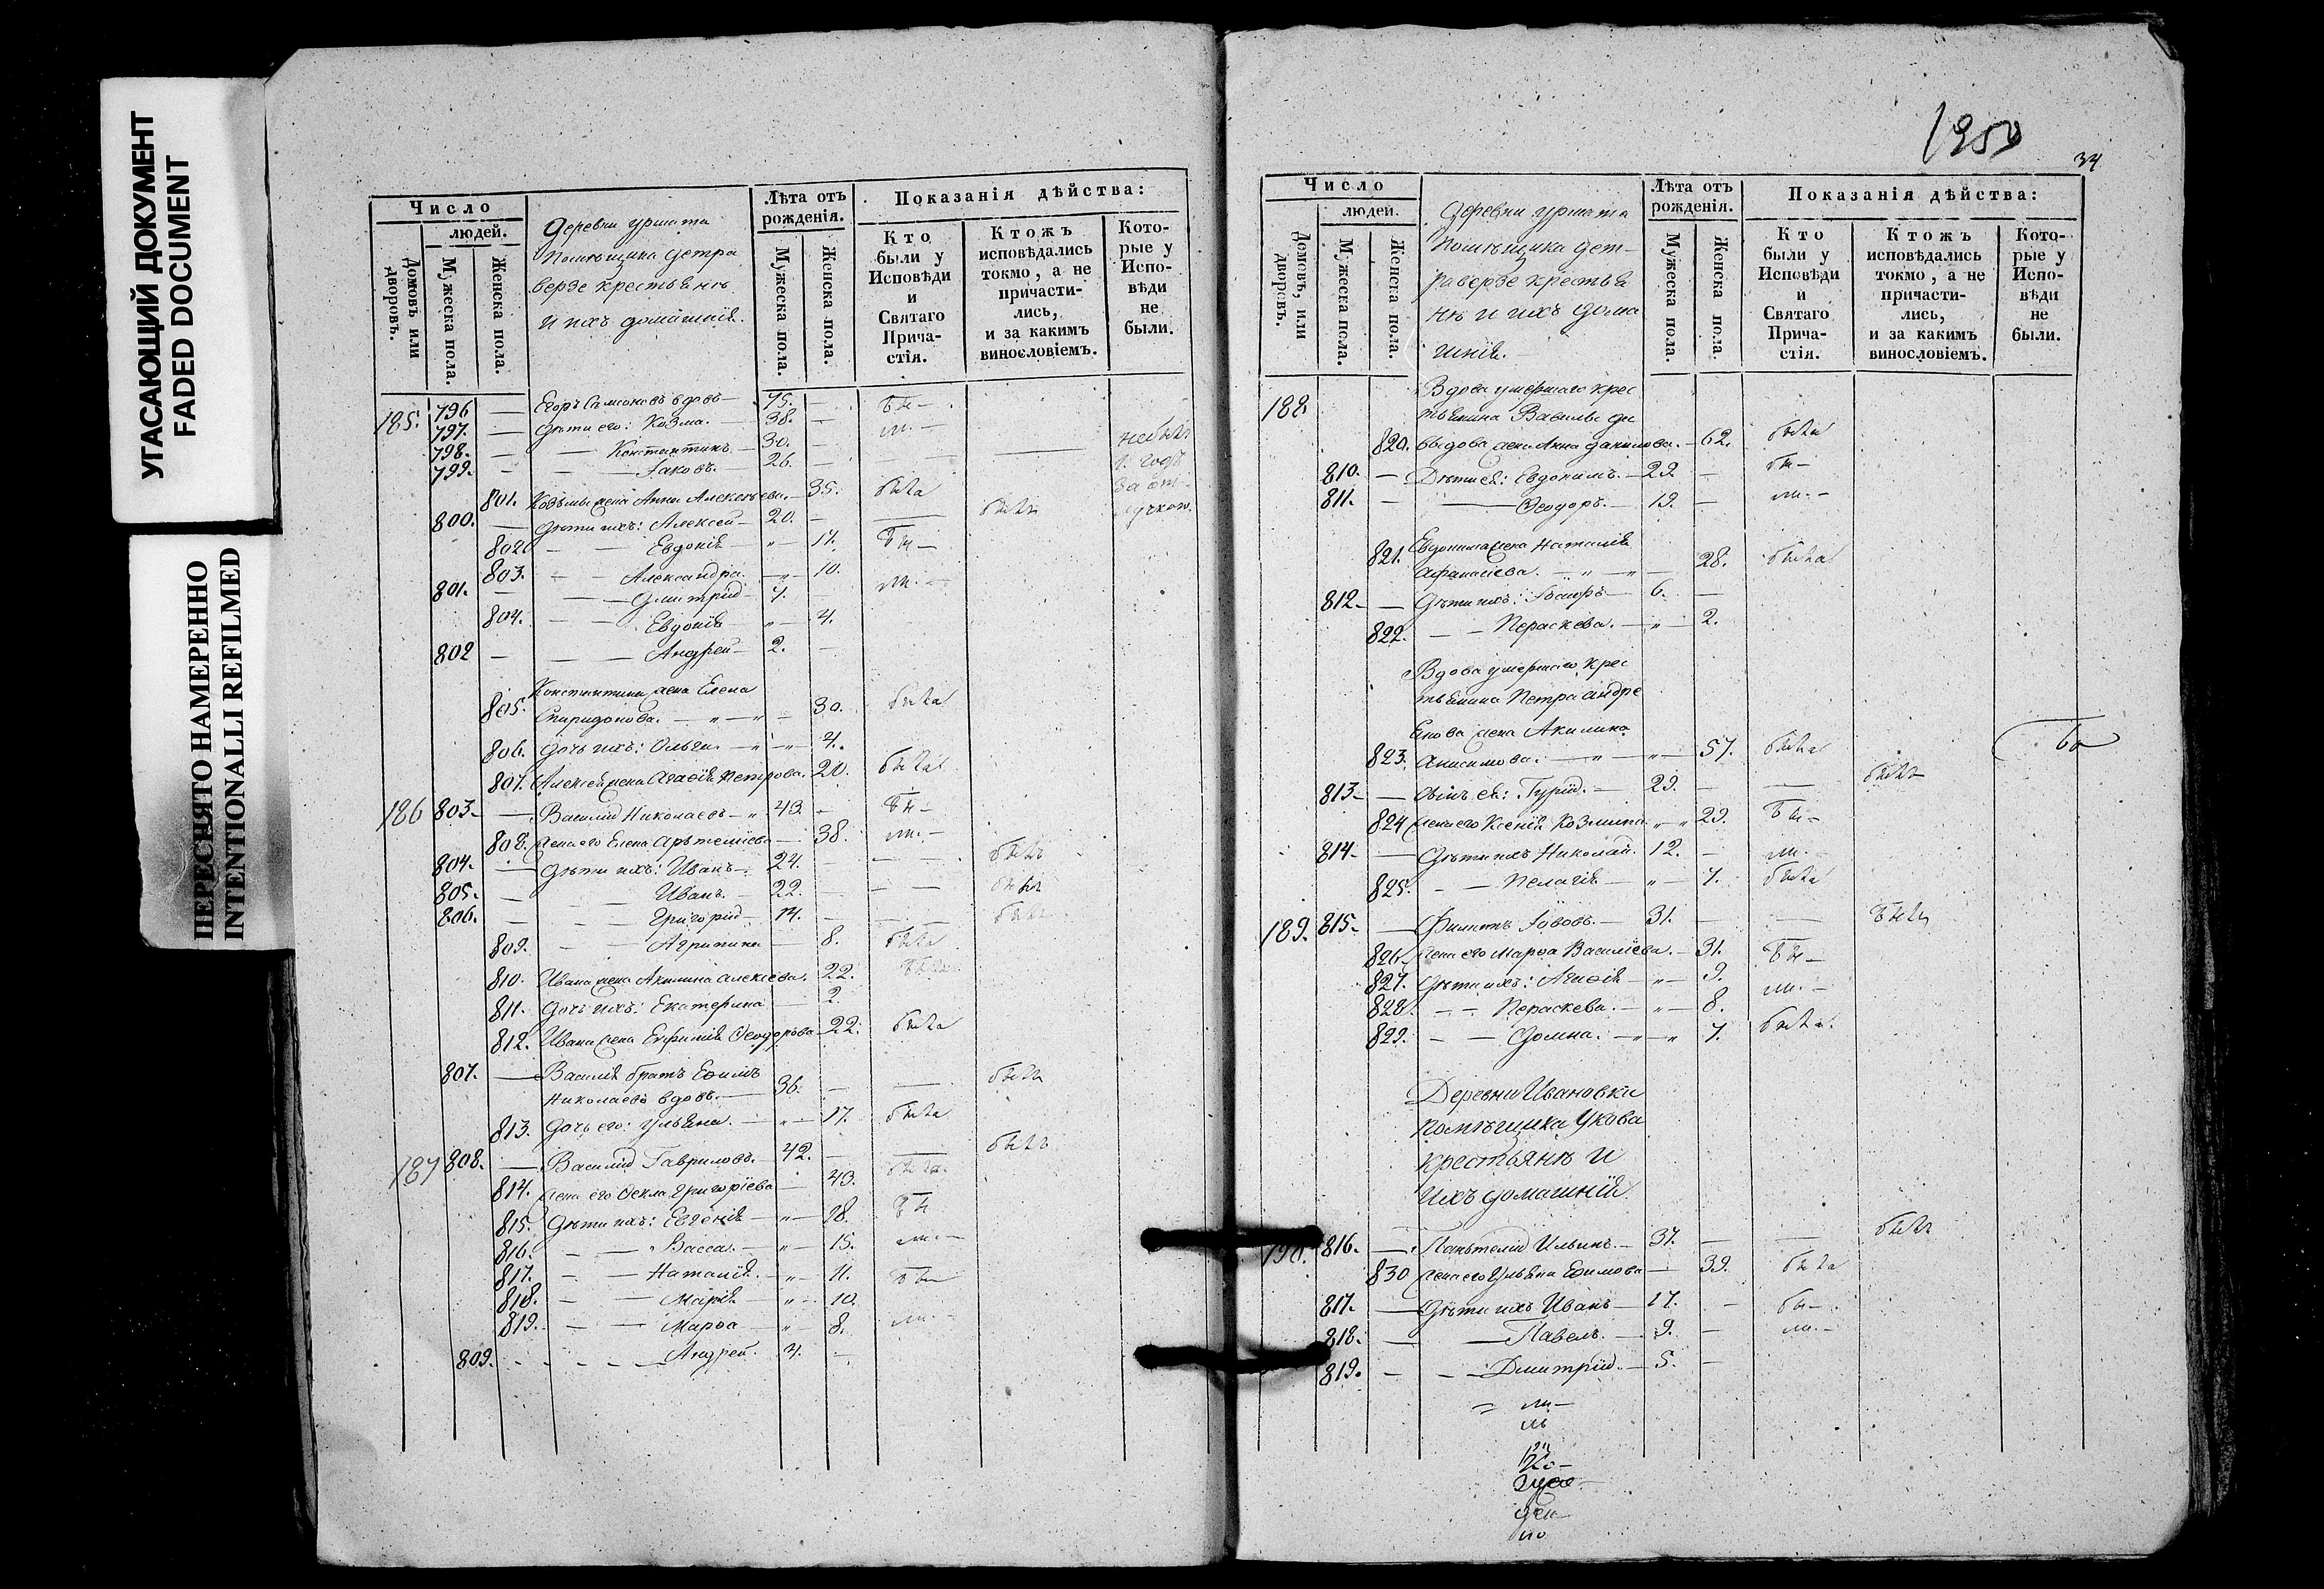 УГАСАЮЩИЙ ДОКУМЕНТ
FADED DOCUMENT
ПЕРЕСНЯТО НАМЕРЕННО
INTENTIONALLI REFILMED
Число
людей.
Домовъ или дворовъ.
Мужеска пола.
Женска пола.
Деревни Уршата
Помѣщика
крестьянъ
и ихъ домашнія.
Лѣта отъ рожденія.
Мужеска пола.
Женска пола.
Показанія дѣйства:
Кто были у Исповѣди и Святаго Причастія.
Ктожъ исповѣдались токмо, а не причастились, и за какимъ винословіемъ.
Которые у Исповѣди не были.
185. 796 — Егоръ вдовъ — 75. — бы—
797. — Дѣти его: Козма. — 38. — ли.—
798. — — Константинъ — 30. — небылъ
799. — — Іаковъ. — 26. —
801. Козьмы жена Анна Алексѣева. — 35. была
800. — Дѣти ихъ: Алексей — 20. — былъ
802. — — Евдокія — „ — 17. бы—
803. — — Александра. — „ — 10.
801. — — Димитрій — 7. ли.—
804. — — Евдокія — „ — 4.
802 — — Андрей — 2. —
Константина жена Елена
805. Спиридонова. — „ — „ — 30. была
806. Дочь ихъ: Ольга. — „ — „ — 4.
807. Алексея жена Агафія Петрова. 20. была
186 803. — Василій Николаевъ — „ 43. — бы—
808. жена его Елена Артеміева — 38. ли.—
804. — Дѣти ихъ: Иванъ — 24. — былъ
805. — — Иванъ. — 22. — былъ
806. — — Григорій — 14. — былъ
809. — — Агрипина — 8. была
810. Ивана жена Акилина Алексіева. 22. была
811. Дочь ихъ: Екатерина — 2.
812. Ивана жена Евфимія Ѳеодорова — 22. была
807. — Василія братъ Ефимъ
Николаевъ вдовъ. — 36. — былъ
813. Дочь его: Ульяна. — „ — 17. была
187 808. — Василій Гавриловъ. — 42. — былъ
814. жена его Ѳекла Григоріева — 43. была.
815. Дѣти ихъ: Евгенія — „ — 18. бы
816. — — Васса. — „ — 15. ли.—
817. — — Наталія. — „ — 11. бы
818. — — Марія „ — 10.
819. — — Марѳа — „ — 8. ли.—
809. — — Андрей. 4. —
34
Число
людей.
Домовъ, или дворовъ.
Мужеска пола.
Женска пола.
Деревни Уршата
Помѣщика
крестья
нъ и ихъ дома
шнія.
Лѣта отъ рожденія.
Мужеска пола.
Женска пола.
Показанія дѣйства:
Кто были у Исповѣди и Святаго Причастія.
Ктожъ исповѣдались токмо, а не причастились, и за какимъ винословіемъ.
Которые у Исповѣди не были.
188 Вдова умершаго крес
тьянина Василья Да
820. выдова жена Анна Данилова. — 62. была
810. — Дѣти ея: Евдокимъ. — 29. — бы—
811. — — Ѳеодоръ. — 19. — ли.—
Евдокима жена Наталія
821. Афанасіева. — „ — „ — 28. была
812. — Дѣти ихъ: — 6. —
822. — — Пераскева. — „ — 2.
Вдова умершаго крес
тьянина Петра Андре
янова жена Акилина
823. Анисимова: — „ — „ — 57. была
813. — Сынъ ея: Гурій. — 29. — былъ
824 жена его Ксенія Козмина „ „ 29. бы—
814. — Дѣти ихъ Николай. 12. — ли.—
825. — — Пелагія — „ — 7. была
189. 815. — Филипъ Іововъ. — 31. — былъ
826. жена его Марѳа Василіева. — 31. бы—
827. Дѣти ихъ: Агафія — „ — 9.
828. — — Пераскева. — „ — 8. ли.—
829. — — Домна. — „ — „ 7. была.
Деревни Ивановки
помѣщика Укова
крестьянъ и
ихъ домашнія.
190. 816. — Ильинъ. — 37. — былъ
830 жена его Ульяна Ефимова — 39. была
817. — Дѣти ихъ Иванъ — 17. — бы—
818. — — Павелъ. — 9. — ли.—
819. — — Димитрій. — 5. —